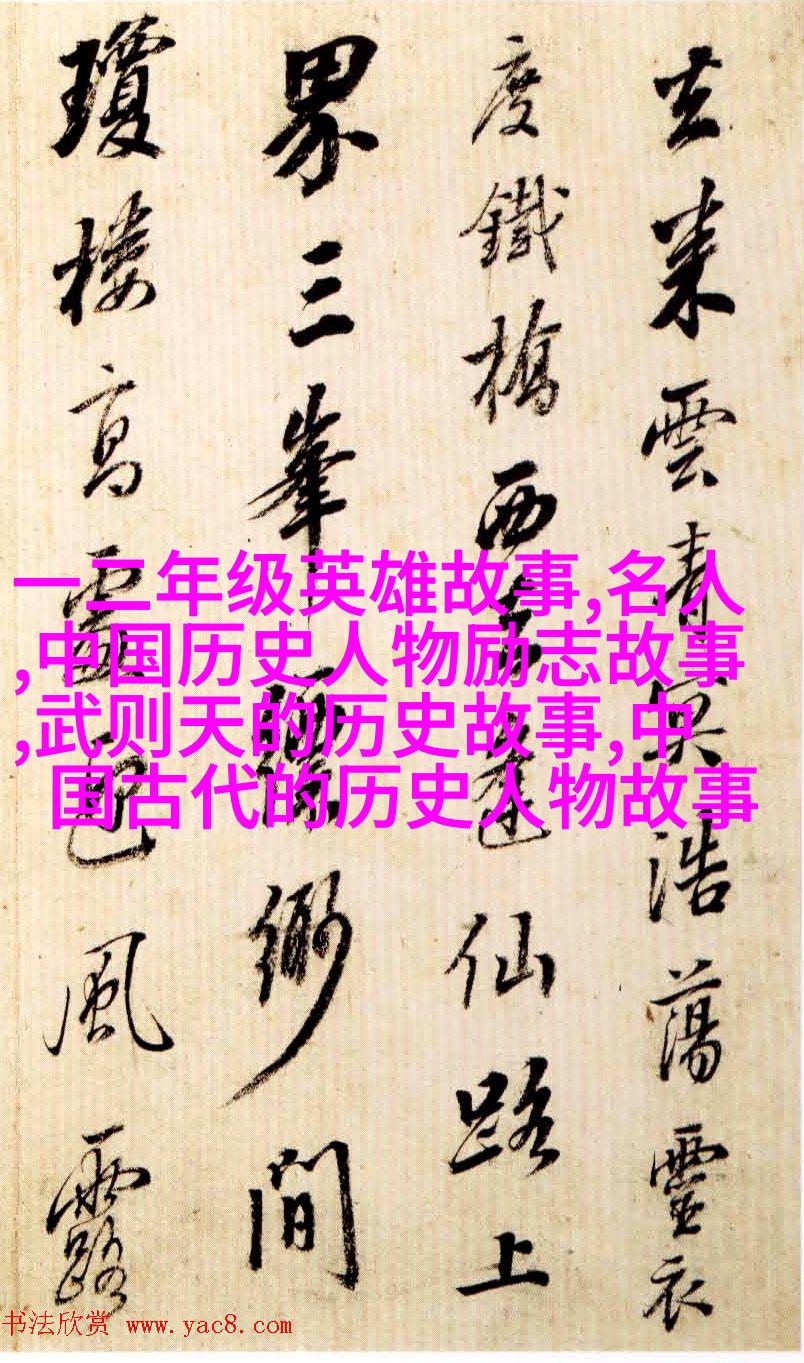 去来雲青冥浩蕩靈衣
度鐵橋西峯蓬仙路上
界三峯縹緲間
瓊樓高處邑風露
一二年级英雄故事,名人
,中国历史人物励志故事
,武则天的历史故事,中
国古代的历史人物故事
书法欣赏 www.yac8.com